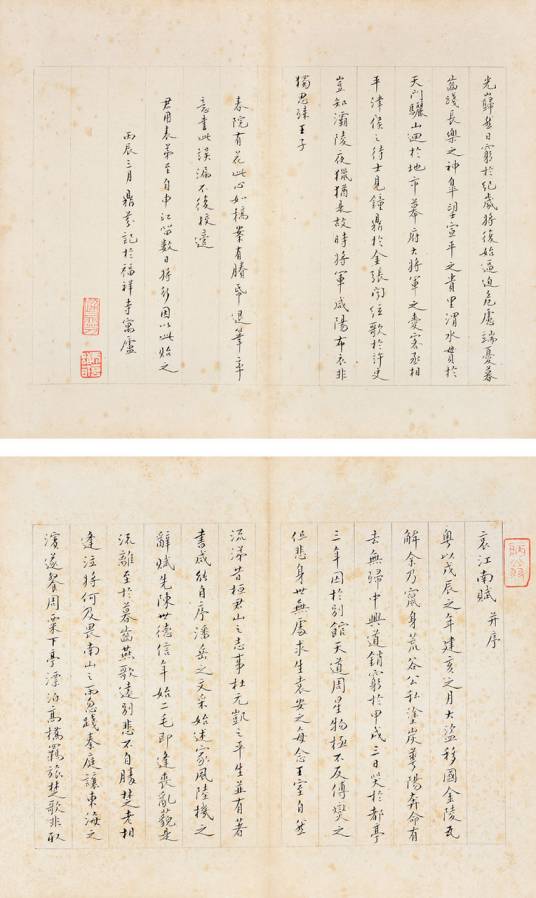 光巋然日窮於紀歲將復始逼迫危慮端憂暮
齒踐長樂之神皋望宣平之貴里渭水貫於
天門驪山迴於地市幕府大將軍之愛客丞相
平津侯之待士見鐘鼎於金張聞弦歌於許史
豈知灞陵夜獵猶是故時將軍咸陽布衣非
獨思歸王子
春院有花此心如槁案有賸帋退筆率
意書此誤漏不復校
君用表弟至自申江留數日將行因以此貽之
丙辰三月鼎芬記於福祥寺寓廬
哀江南賦 并序
粵以戊辰之年建亥之月大盜移國金陵瓦
解余乃竄身荒谷公私塗炭華陽奔命有
去無歸中興道銷窮於甲戌三日哭於都亭
三年囚於別館天道周星物極不反傅燮之
但悲身世無處求生袁安之每念王室自然
流涕昔桓君山之志事杜元凱之平生並有著
書咸能自序潘岳之文采始述家風陸機之
辭賦先陳世德信年始二毛即逢喪亂藐是
流離至於暮齒燕歌遠別悲不自勝楚老相
逢泣將何及畏南山之雨忽踐秦庭讓東海之
濱遂餐周粟下亭漂泊高橋羈旅楚歌非取